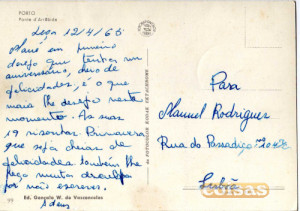 PORTO
Ponte d'Arrábida
Leça 12/4/65
em primeiro
desejo que tenhas um
aniversário, cheio de
felicidades, é o que
mais lhe desejo neste
momento. As suas
19 risonhas Primaveras
que sejam cheias de
felicidades também lhe
peço muitas desculpas
por não escrever.
Ed. Gonçalo W. de Vasconcelos
Adeus
99
Para
Manuel Rodrigues
Rua do Passadiço
Lisboa
coisas